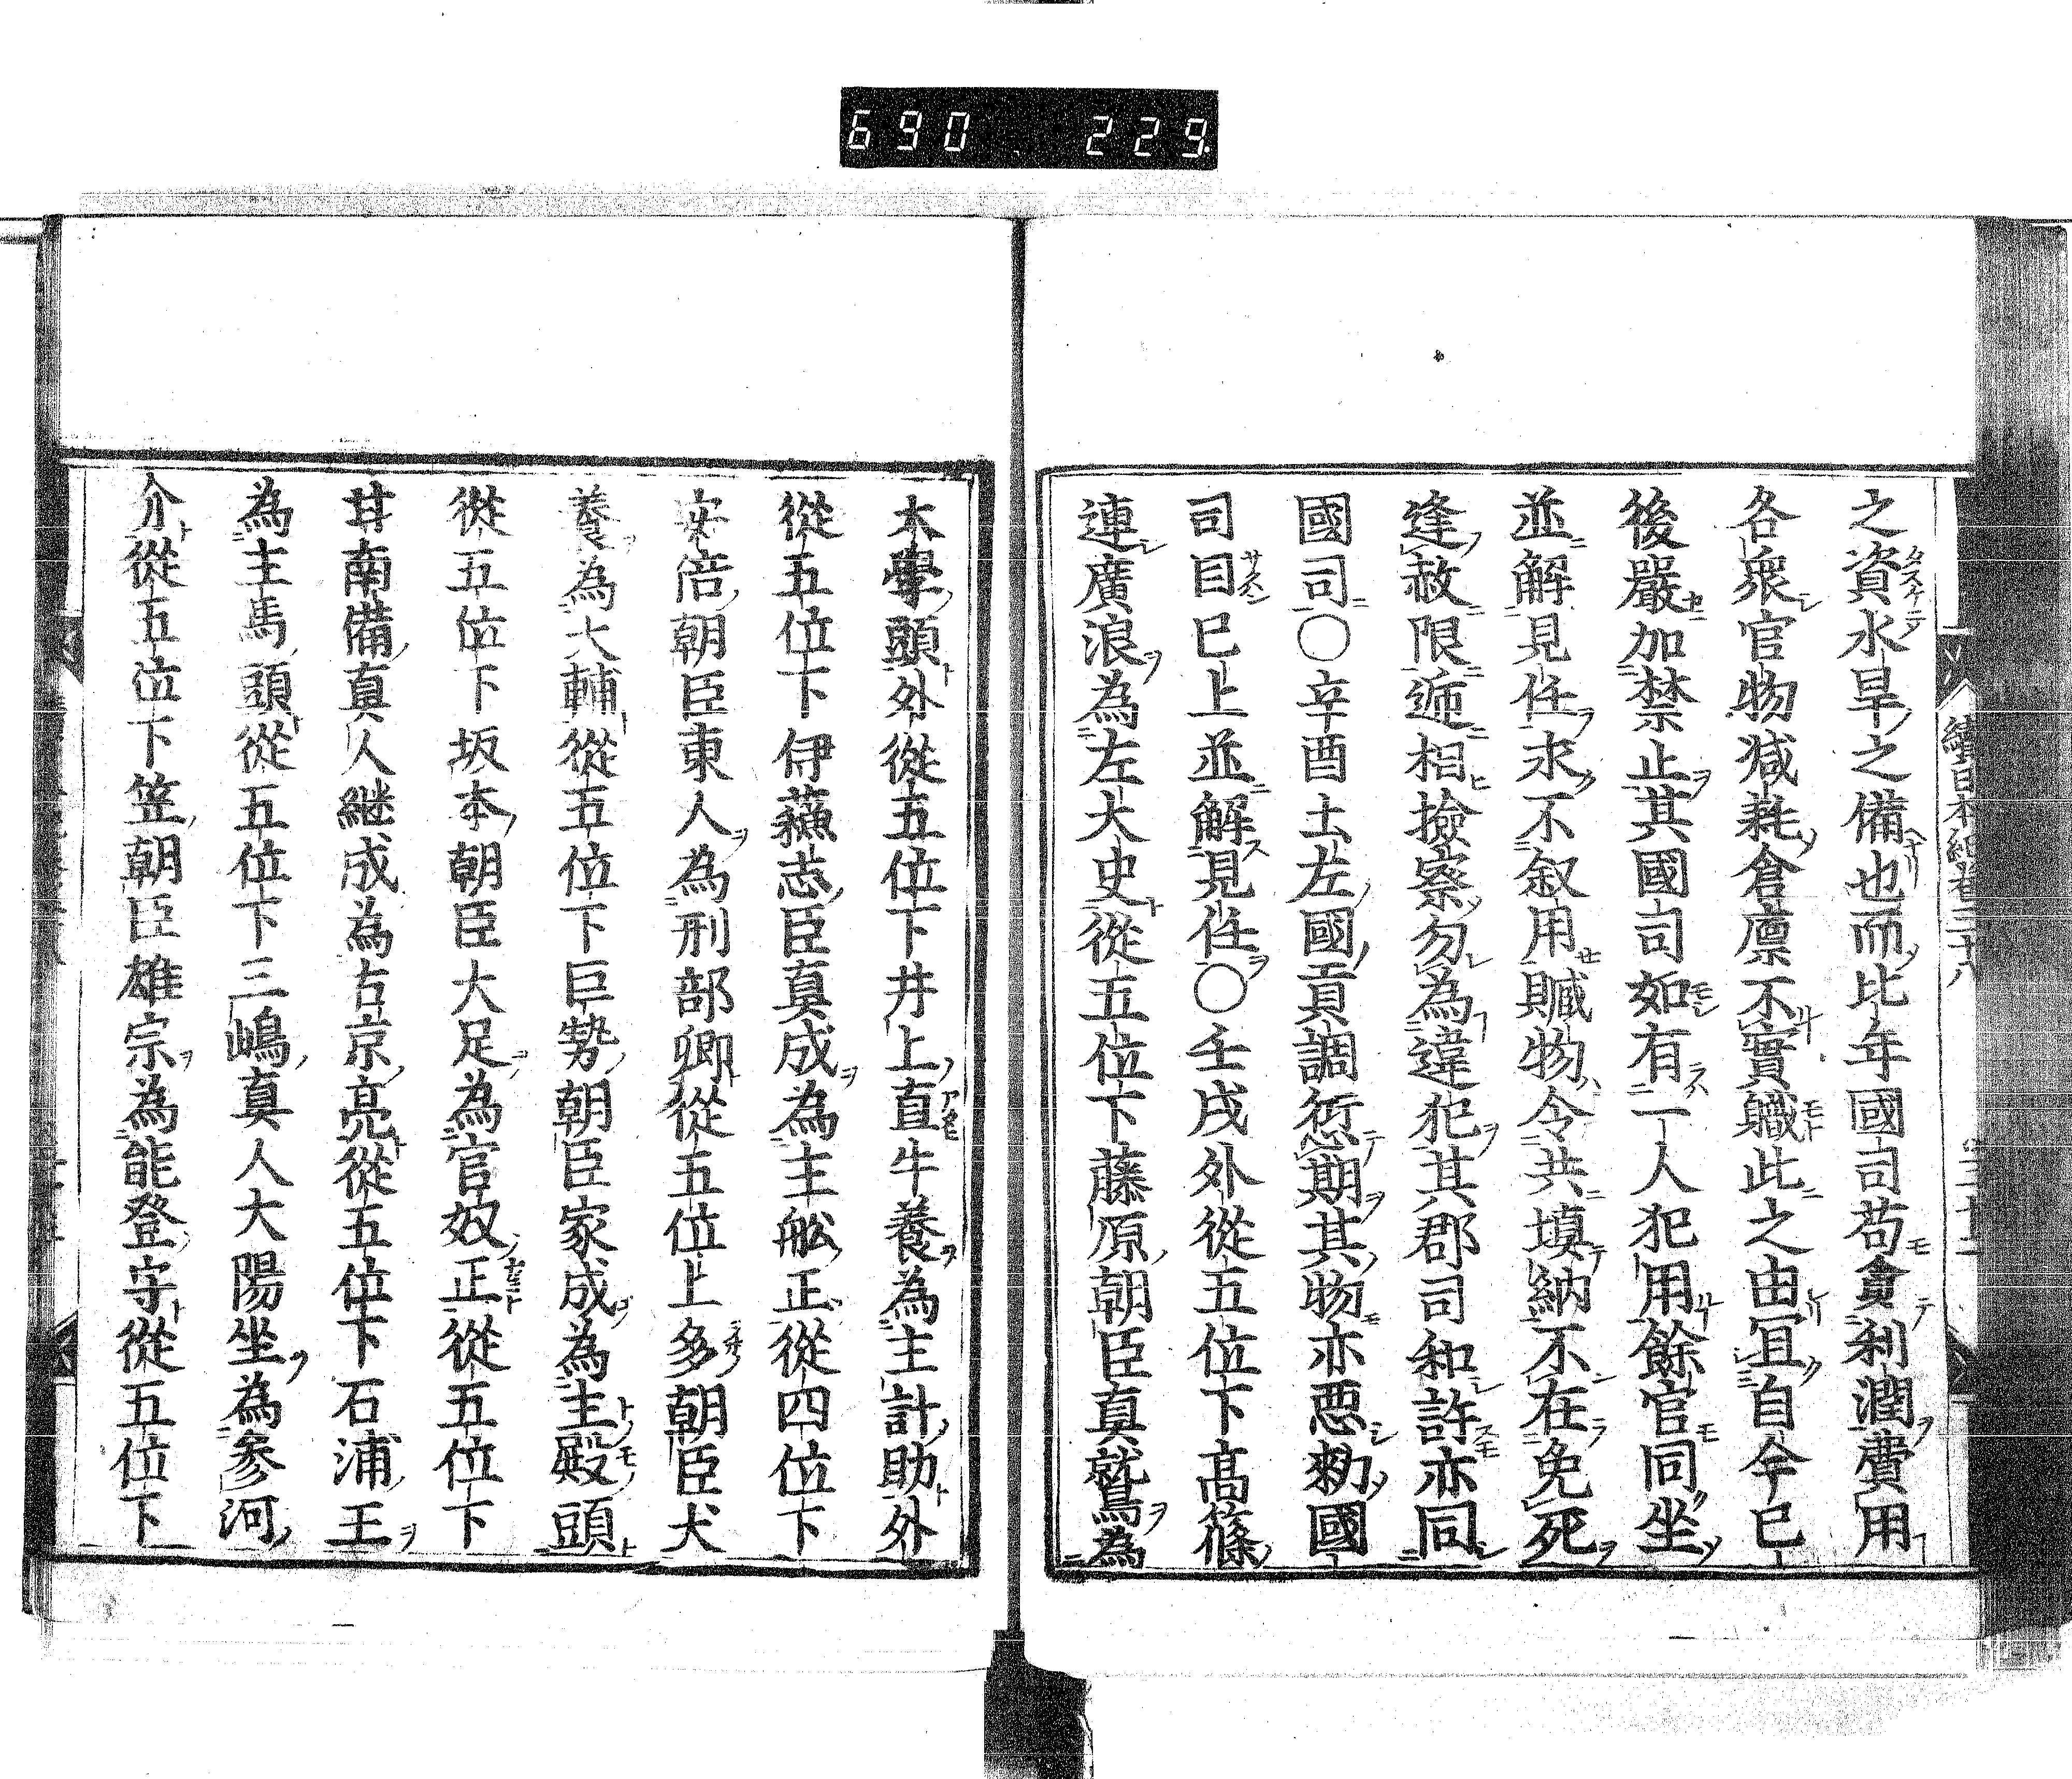 690 229
續日本紀卷三十八
之資水旱之備也而比年國司苟貪利潤費用
各衆官物減耗倉廩不實職此之由冝自今已
後嚴加禁止其國司如有一人犯用餘官同坐
並解見任永不叙用贓物令共填納不在免死
逢赦限逓相撿察勿為違犯其郡司和許亦同
國司○辛酉土左國貢調愆期其物亦悪勅國
司目已上並解見任○壬戌外從五位下髙篠
連廣浪為左大史從五位下藤原朝臣真就鷲為
大學頭外從五位下井上直牛養為主計助外
從五位下伊蘓志臣真成為主舩正從四位下
安倍朝臣東人為刑部卿從五位上多朝臣犬
養為大輔從五位下巨勢朝臣家成為主殿頭
從五位下坂本朝臣大足為官奴正從五位下
井南備真人継成為右京亮從五位下石浦王
為主馬頭從五位下三嶋真人大陽坐為參河
介從五位下笠朝臣雄宗為能登守從五位下